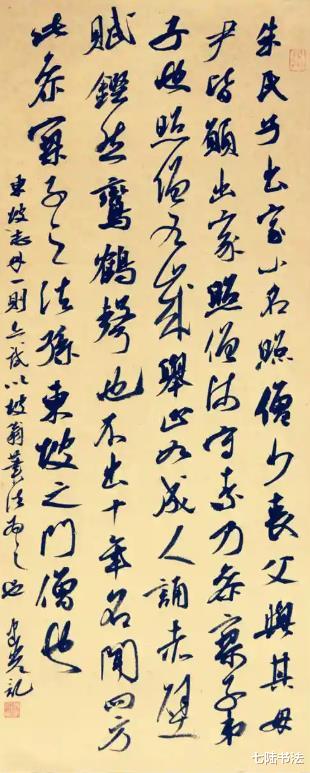 朱氏子出家小名照僧少喪父與其母
尹皆願出家照僧師守素乃參寥子弟
子也照僧九歲舉止如成人誦赤壁
賦鏗然鸞鶴聲也不出十年名聞四方
此參寥子之法孫東坡之門僧也
東坡志林一則以坡翁筆法為之也記
七陆书法